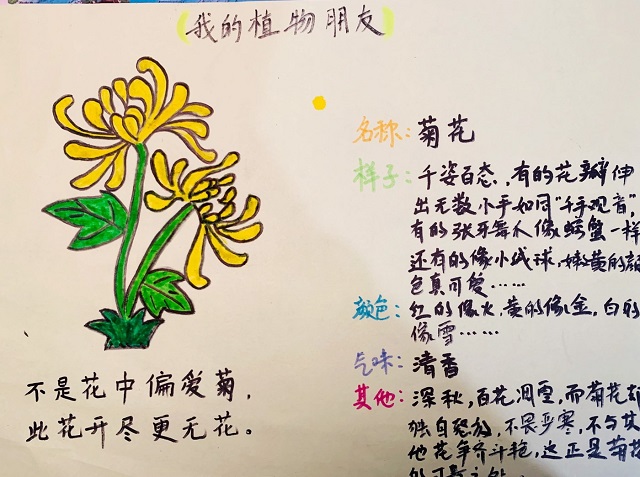 (我的植物朋友)
名称:菊花
样子:千姿百态,有的花瓣伸
出无数小手如同“千手观音”,
有的张牙舞爪像螃蟹一样
还有的像小绒球,嫩黄的颜
色真可爱……
颜色:红的像火,黄的像金,白的
像雪……
气味:清香
其他:深秋,百花凋零,而菊花却
独自绽放,不畏严寒,不与其
他花争奇斗艳,这正是菊花
不是花中偏爱菊,
此花开尽更无花。